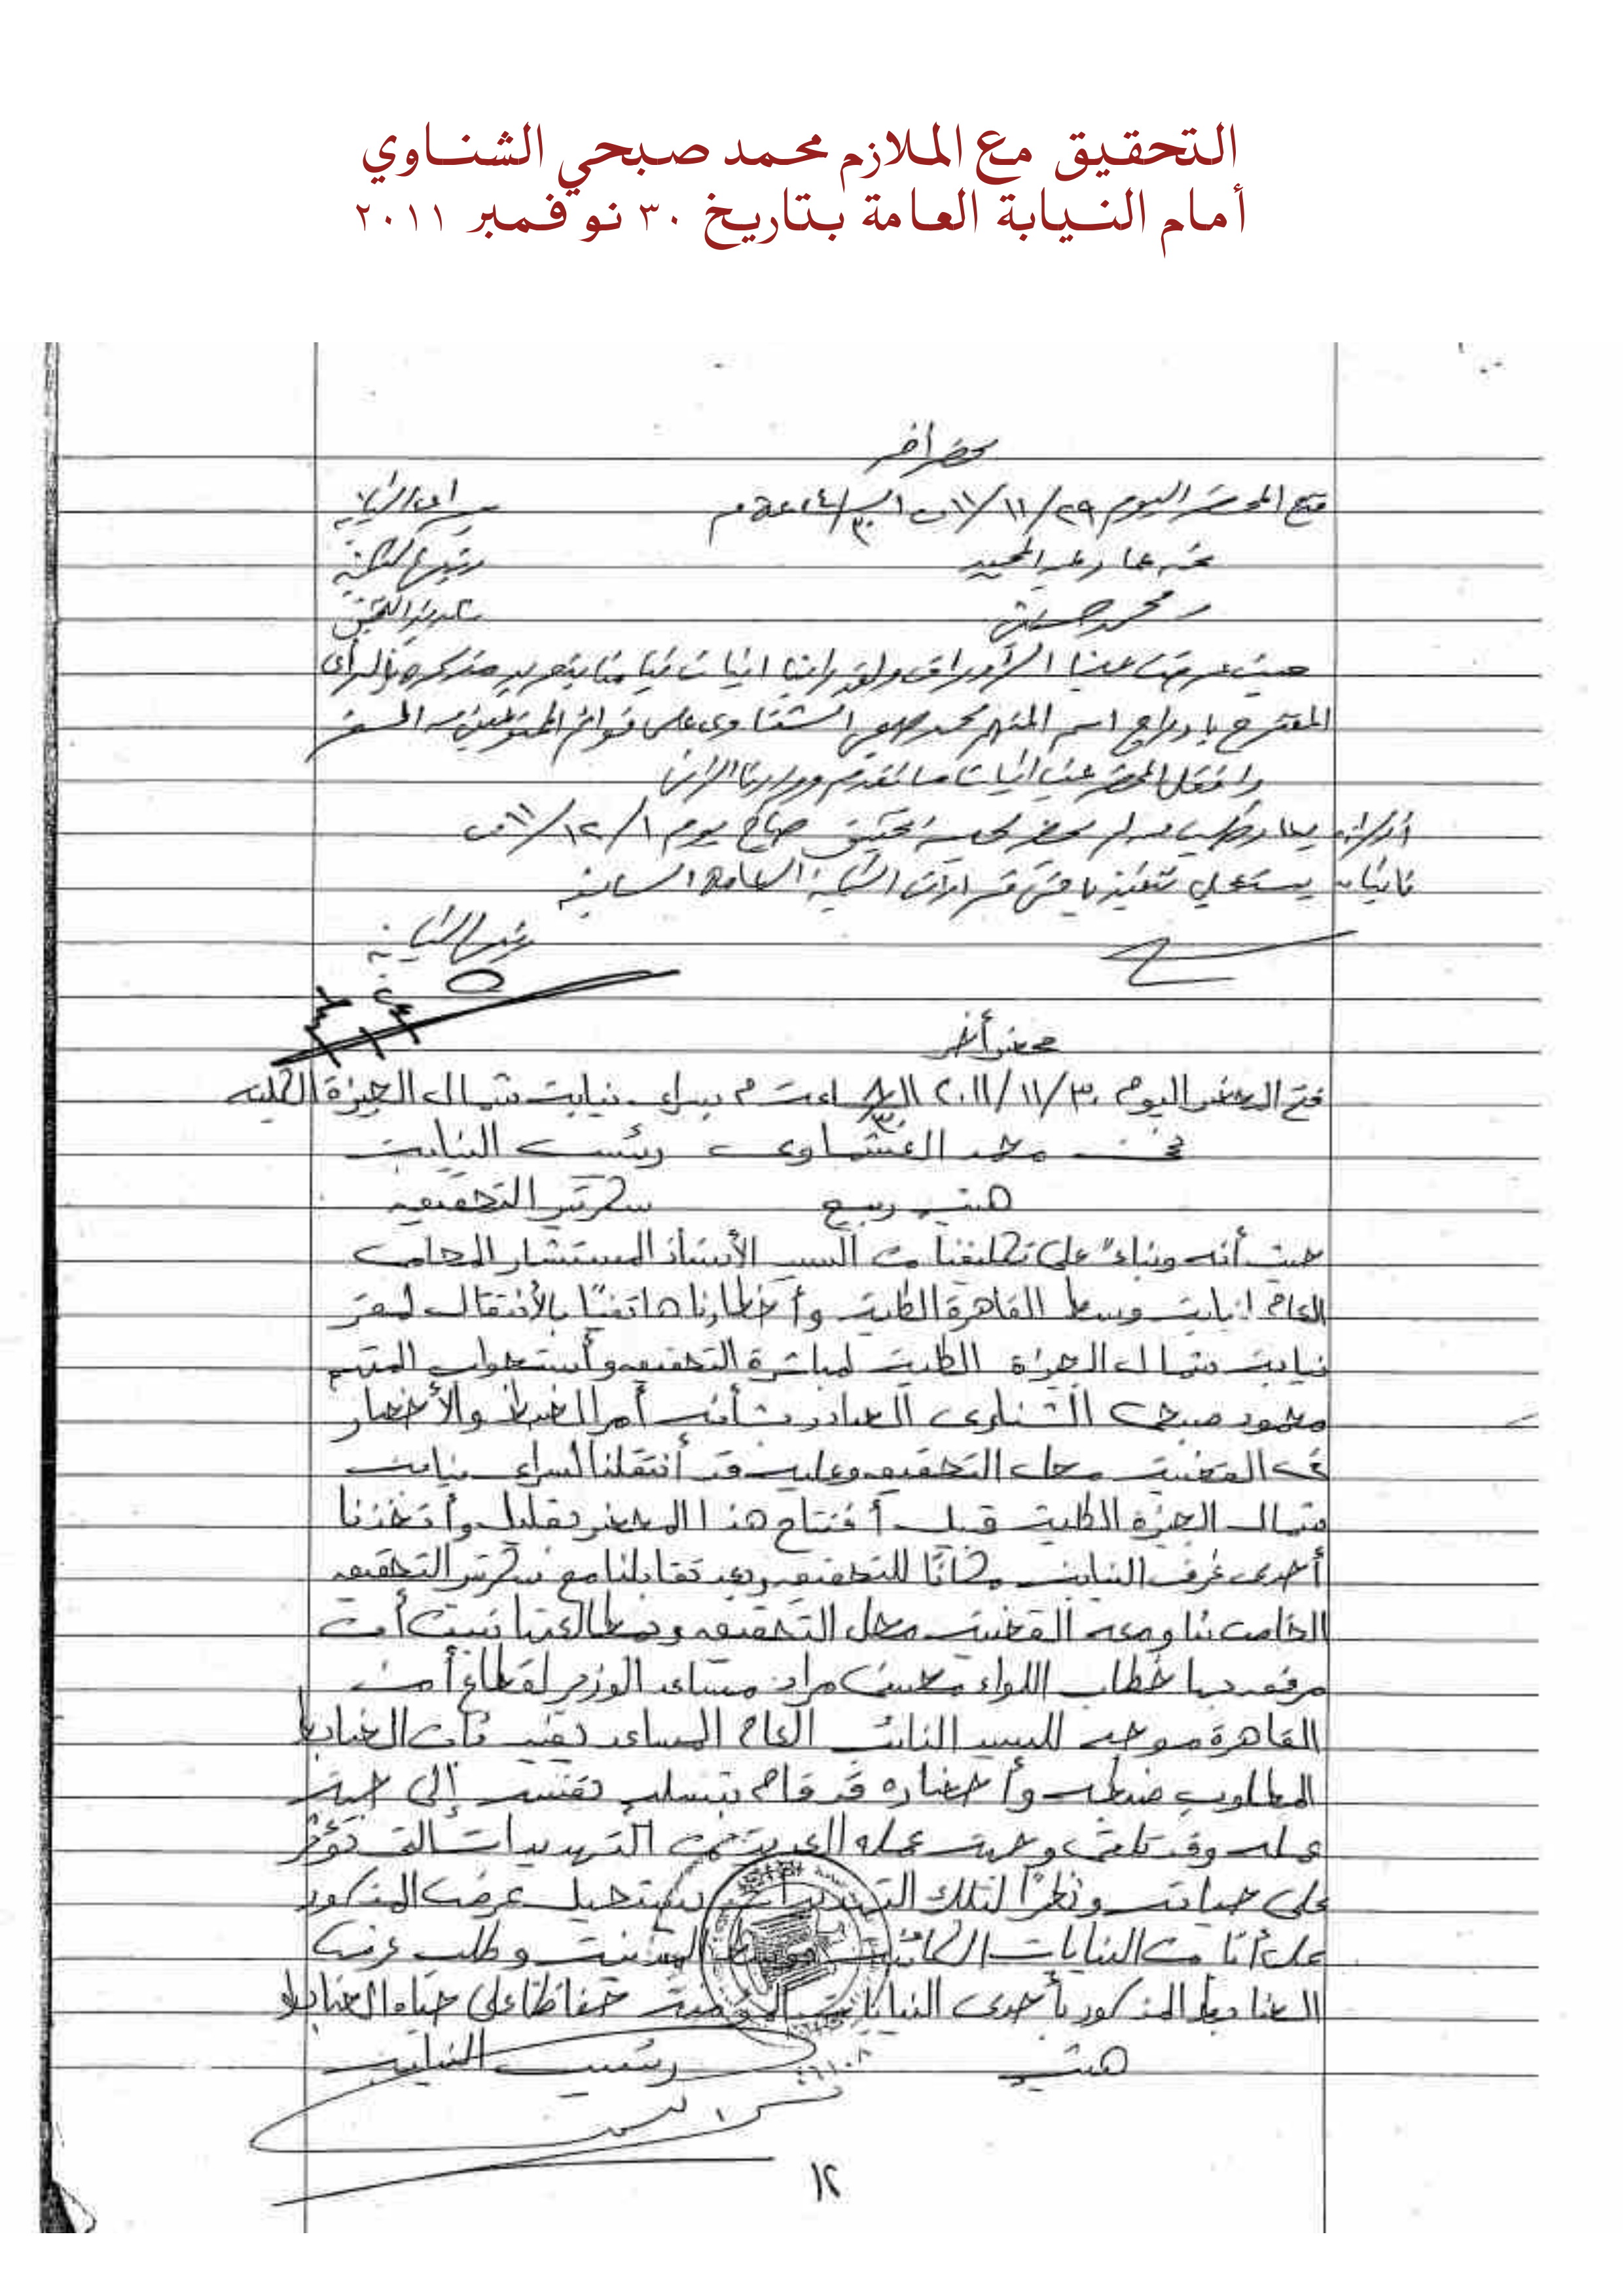 التحقيق مع الملازم محمد صبحي الشناوي
أمام النيابة العامة بتاريخ ٣٠ نوفمبر ٢٠١١
محضر آخر
فتح المحضر اليوم ٢٩/١١/١١ الساعة ٤/٣٠ م بسراى النيابة
نحن عمار عبد المجيد رئيس النيابة
و محمد سكرتير التحقيق
حيث عرضت علينا الأوراق ولقد رأينا اثبات قيامنا بتحرير مذكرة بالرأى
المقترح بادراج اسم المتهم محمد صبحى الشناوى على قوائم الممنوعين من السفر
واقفل المحضر عقب اثبات ما تقدم وقررنا الآتى
أولا: يعاد طلب من لم يحضر لجلسة تحقيق صباح يوم ١/١٢/١١
ثانيا: يستعجل تنفيذ باقى قرارات النيابة العامة السابقة
رئيس النيابة
محضر أخر
فتح المحضر اليوم ٣٠/١١/٢٠١١ الساعة ٨/٣٠ م بسراى نيابة شمال الجيزة الكلية
نحن محمد العشماوى رئيس النيابة
هيثم ربيع سكرتير التحقيق
حيث أنه وبناءً على تكليفنا من السيد الأستاذ المستشار المحامى
العام لنيابة وسط القاهرة الكلية وأخطارنا هاتفيًا بالأنتقال لمقر
نيابة شمال الجيزة الكلية لمباشرة التحقيق وأستجواب المتهم
محمود صبحى الشناوى الصادر بشأنه أمر الضبط والأحضار
فى القضية محل التحقيق وعليه فقد أنتقلنا لسراى نيابة
شمال الجيزة الكلية قبل أفتتاح هذا المحضر بقليل وأتخذنا
أحدى غرف النيابة مكانًا للتحقيق وبعد تقابلنا مع سكرتير التحقيق
الخاص بنا ومعه القضية محل التحقيق وبمطالعتها تبين أنه
مرفق بها خطاب اللواء محسن مراد مساعد الوزير لقطاع أمن
القاهرة موجه للسيد النائب العام المساعد يفيد بأن الضابط
المطلوب ضبطه وأحضاره قد قام بتسليم نفسه إلى جهة
عمله وقد تلقى وجهة عمله العديد من التهديدات التى تؤثر
على حياته ونظرًا لتلك التهديدات يستحيل عرض المذكور
على أيًا من النيابات الكائنة بوسط المدينة وطلب عرض
الضابط المذكور بأحدى النيابات المؤمنة حفاظًا على حياة الضابط
هيثم رئيس النيابة
١٢